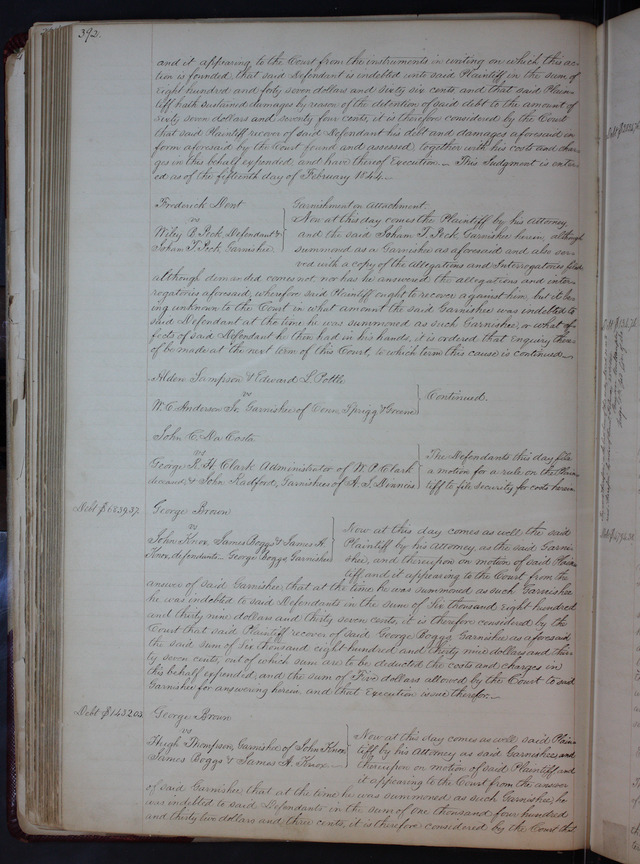 392.
and it appearing to the Court from the instruments in writing on which this ac-
tion is founded, that said Defendant is indebted unto said Plaintiff in the sum of
Eight hundred and forty seven dollars and sixty six cents, and that said Plain-
tiff hath sustained damages by reason of the detention of said debt to the amount of
sixty seven dollars and seventy four cents, it is therefore considered by the Court
that said Plaintiff recover of said Defendant his debt and damages aforesaid in
form aforesaid by the Court found and assessed, together with his costs and char-
ges in this behalf expended and have thereof Execution. — This Judgment is enter-
ed as of the fifteenth day of February 1844. —
Frederick Dent
vs
Wiley B. Peck Defendant &
Isham T. Peck Garnishee
Garnishment in Attachment.
Now at this day comes the Plaintiff by his Attorney
and the said Isham T. Peck Garnishee herein, although
summoned as a Garnishee as aforesaid and also ser-
ved with a copy of the allegations and Interrogatories filed
although demanded comes not, nor has he answered the allegations and inter-
rogatories aforesaid, wherefore said Plaintiff ought to recover against him, but it be-
ing unknown to the Court in what amount the said Garnishee was indebted to
said Defendant at the time he was summoned as such Garnishee, or what ef-
fects of said Defendant he then had in his hands, it is ordered that enquiry there-
of be made at the next term of this Court, to which term this cause is continued. —
Alden Sampson & Edward L. Pottle
vs
W. C. Anderson Sr. Garnishee of Conn Sprigg & Greene
Continued.
John C. Da Costa
vs
George R. H. Clark Administrator of W. P. Clark
deceased & John Radford, Garnishees of A. S. Dinnies
The Defendants this day file
a motion for a rule on the Plain-
tiff to file security for costs herein
Debt $6839.37
George Brown
vs
John Knox, James Boggs & James H.
Knox, defendants — George Boggs, Garnishee
Now at this day comes as well the said
Plaintiff by his Attorney, as the said Garni-
shee, and thereupon on motion of said Plain-
tiff, and it appearing to the Court from the
answer of said Garnishee, that at the time he was summoned as such Garnishee
he was indebted to said Defendants in the sum of Six thousand Eight hundred
and thirty nine dollars and thirty seven cents, it is therefore considered by the
Court that said Plaintiff recover of said George Boggs Garnishee as aforesaid
the said sum of Six thousand eight hundred and thirty nine dollars and thir-
ty seven cents, out of which sum are to be deducted the costs and charges in
this behalf expended, and the sum of Five dollars allowed by the Court to said
Garnishee for answering herein, and that Execution issue therefor. —
Debt $1432.03
George Brown
vs
Hugh Thompson, Garnishee of John Knox
James Boggs & James H. Knox —
Now at this day comes as well said Plain-
tiff by his Attorney as said Garnishee, and
thereupon on motion of said Plaintiff and
it appearing to the Court from the answer
of said Garnishee that at the time he was summoned as such Garnishee, he
was indebted to said Defendants in the sum of One thousand four hundred
and thirty two dollars and three cents, it is therefore considered by the Court that